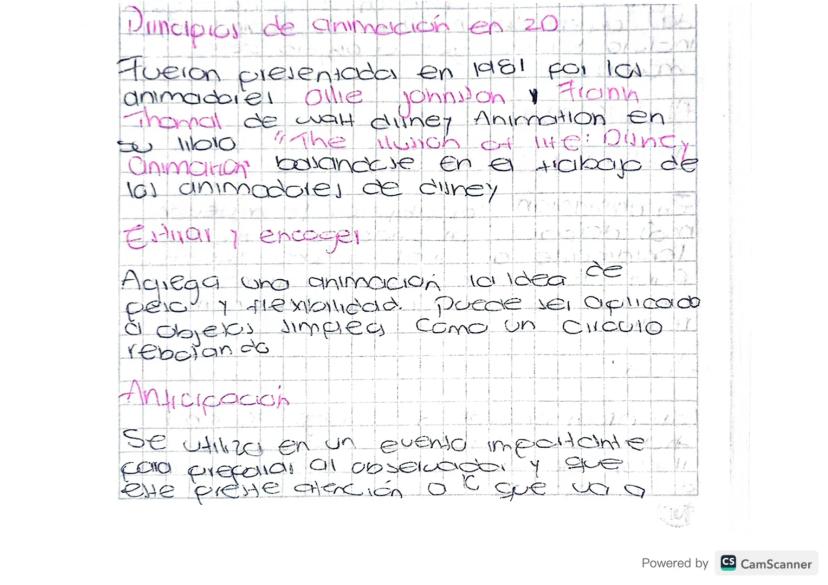 Principios de animación en 2D
Fueron presentados en 1981 por los
animadores Ollie Johnston y Frank
Thomas de Walt disney Animation en
su libro "The illusion of life: Disney
Animation" basandose en el trabajo de
los animadores de disney
Estirar y encoger
Agrega una animación la idea de
peso y flexibilidad. Puede ser aplicado
a objetos simples como un circulo
rebotando
Anticipación
Se utiliza en un evento importante
para preparar al observador y que
este preste atención a lo que va a
Powered by CS CamScanner